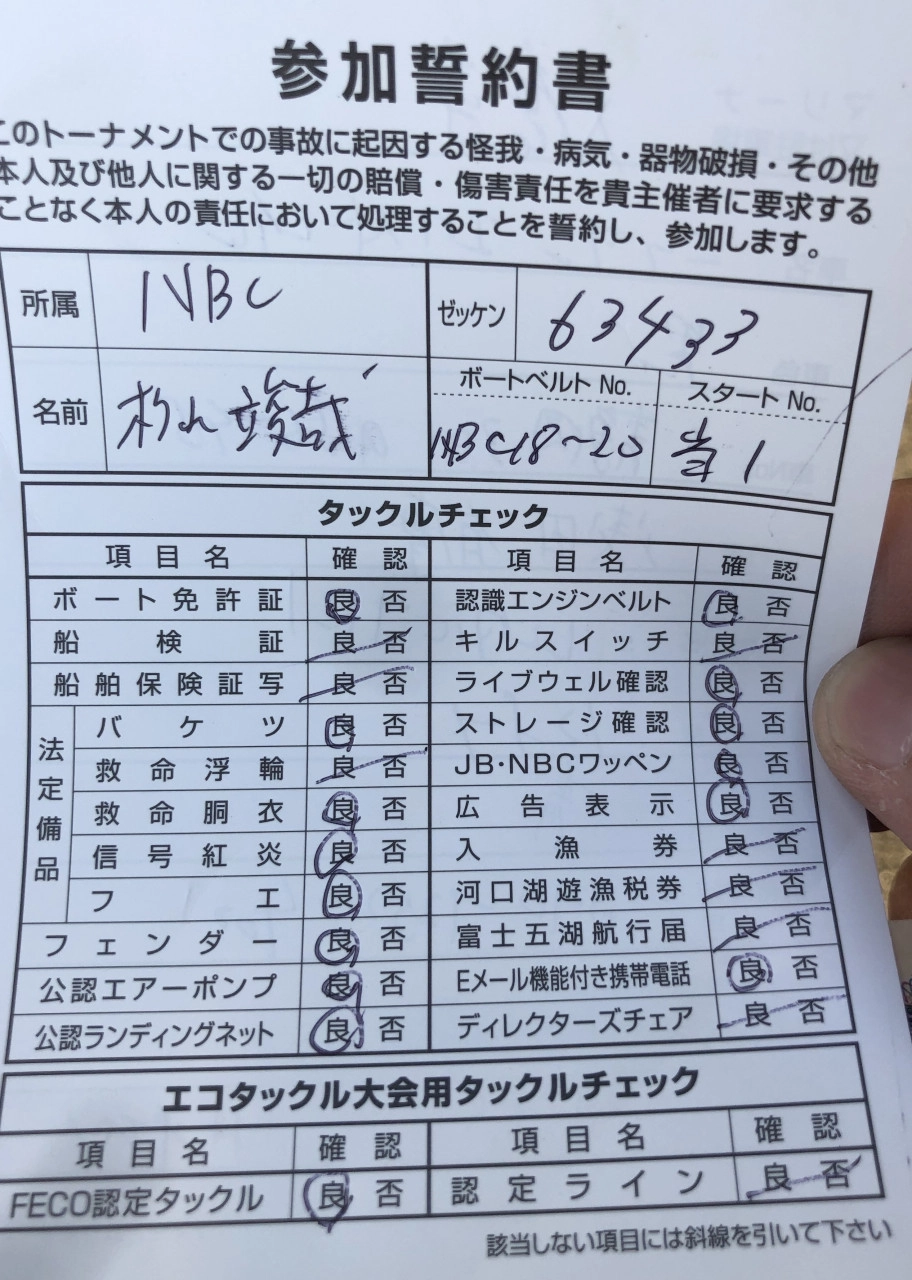 参加誓約書
このトーナメントでの事故に起因する怪我・病気・器物破損・その他
本人及び他人に関する一切の賠償・傷害責任を貴主催者に要求する
ことなく本人の責任において処理することを誓約し、参加します。
所属 NBC ゼッケン 63433
名前 竣哉 ボートベルト No. スタート No.
NBC18～20 当1
タックルチェック
項目名 確認 項目名 確認
ボート免許証 良 否 認識エンジンベルト 良 否
船検証 良 否 キルスイッチ 良 否
船舶保険証写 良 否 ライブウェル確認 良 否
法定備品 バケツ 良 否 ストレージ確認 良 否
救命浮輪 良 否 JB・NBCワッペン 良 否
救命胴衣 良 否 広告表示 良 否
信号紅炎 良 否 入漁券 良 否
フエ 良 否 河口湖遊漁税券 良 否
フェンダー 良 否 富士五湖航行届 良 否
公認エアーポンプ 良 否 Eメール機能付き携帯電話 良 否
公認ランディングネット 良 否 ディレクターズチェア 良 否
エコタックル大会用タックルチェック
項目名 確認 項目名 確認
FECO認定タックル 良 否 認定ライン 良 否
該当しない項目には斜線を引いて下さい